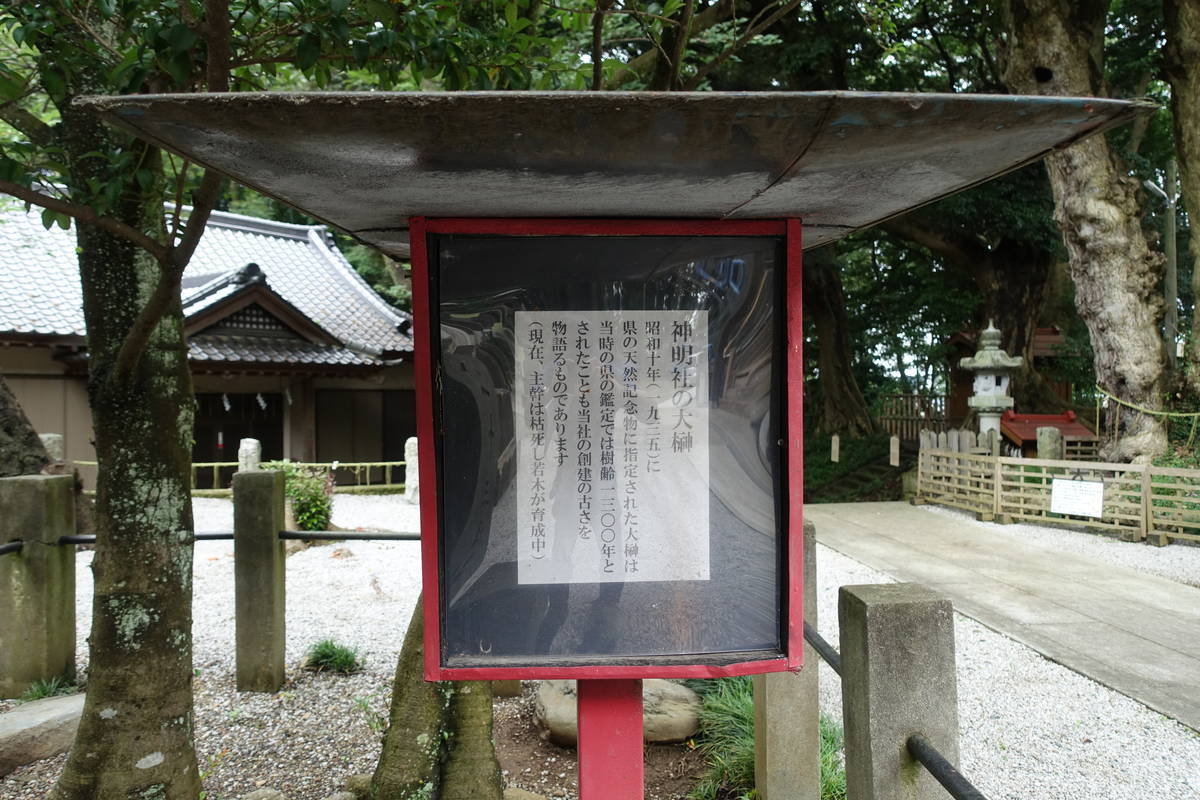 神明社の大榊
昭和十年(一九三五)に
県の天然記念物に指定された大榊は
当時の県の鑑定では樹齢一三〇〇年と
されたことも当社の創建の古さを
物語るものであります
(現在、主幹は枯死し若木が育成中)